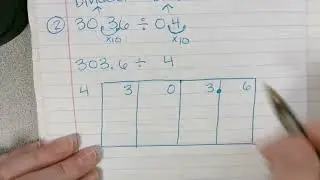 ② 30.36 ÷ 0.4
x10 x10
303.6 ÷ 4
4 3 0 3.6